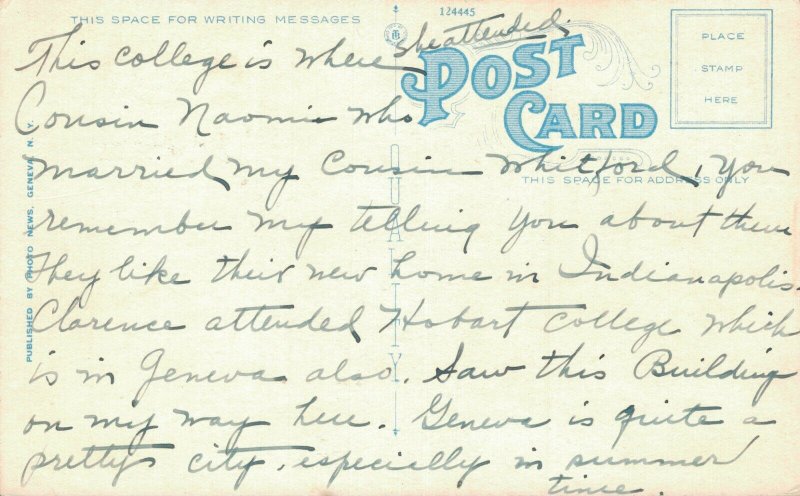 THIS SPACE FOR WRITING MESSAGES
124445
POST CARD
PLACE
STAMP
HERE
THIS SPACE FOR ADDRESS ONLY
PUBLISHED BY PHOTO NEWS, GENEVA, N. Y.
QUALITY
This college is where she attended.
Cousin Naomi who
married my Cousin Whitford, you
remember my telling you about them
They like their new home in Indianapolis.
Clarence attended Hobart college which
is in Geneva also. Saw this Building
on my way here. Geneva is quite a
pretty city, especially in summer
time.